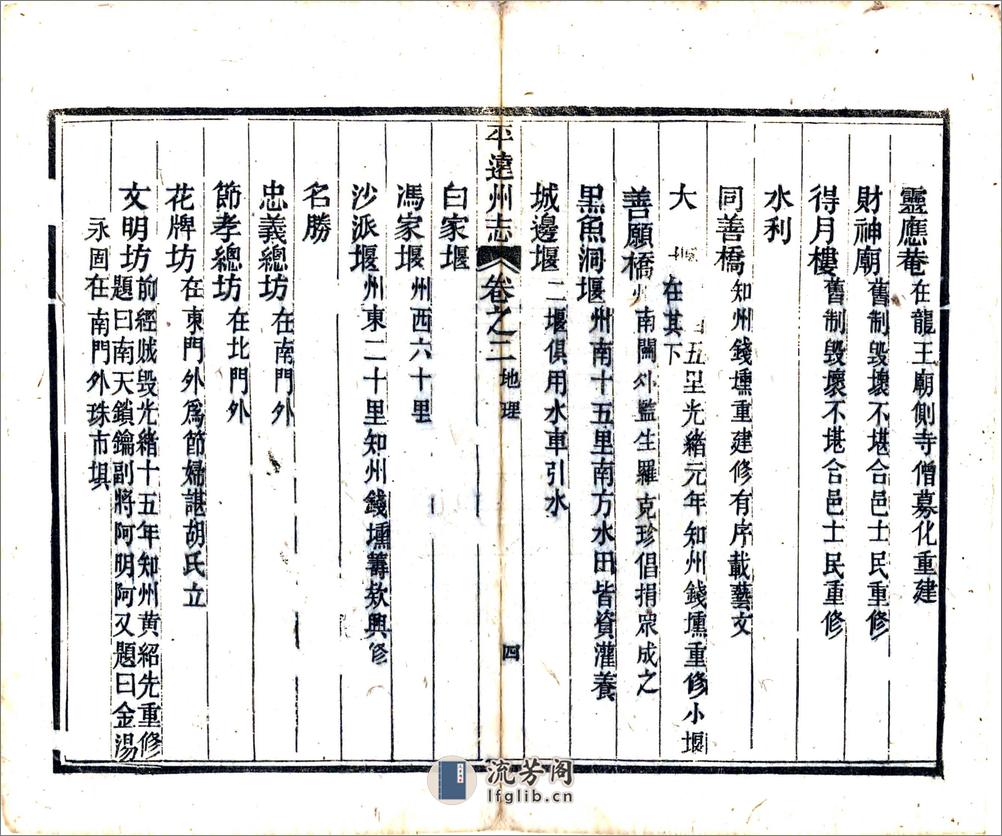 靈應菴在龍王廟側寺僧募化重建
財神廟舊制毀壞不堪合邑士民重修
得月樓舊制毀壞不堪合邑士民重修
水利
同善橋知州錢壎重建修有序載藝文
大 五里光緒元年知州錢壎重修小堰
在其下
善願橋州南關外監生羅克珍倡捐眾成之
黑魚洞堰州南十五里南方水田皆資灌養
城邊堰二堰俱用水車引水
平遠州志 卷之二 地理 四
白家堰
馮家堰州西六十里
沙派堰州東二十里知州錢壎籌欵興修
名勝
忠義總坊在南門外
節孝總坊在北門外
花牌坊在東門外爲節婦諶胡氏立
文明坊前經賊毀光緒十五年知州黃紹先重修
題曰南天鎖鑰副將阿明阿又題曰金湯
永固在南門外珠市塤
流芳阁
lfglib.cn